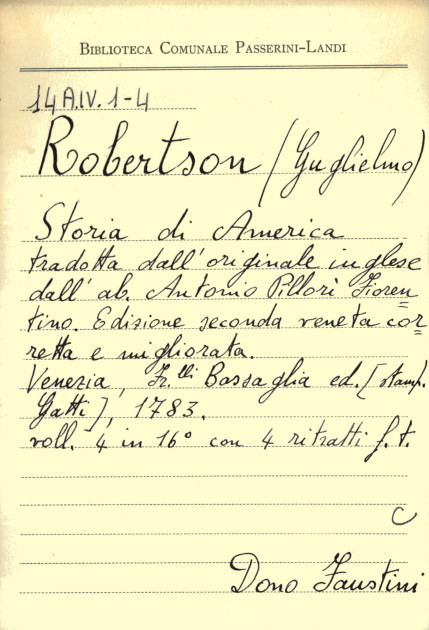 BIBLIOTECA COMUNALE PASSERINI-LANDI
14A.IV. 1-4
Robertson (Guglielmo)
Storia di America
tradotta dall'originale inglese
dall'ab. Antonio Pillori Fioren=
tino. Edizione seconda veneta cor=
retta e migliorata.
Venezia, Fr.lli Bassaglia ed. [stamp.
Gatti], 1783.
voll. 4 in 16° con 4 ritratti f.t.
C
Dono Faustini